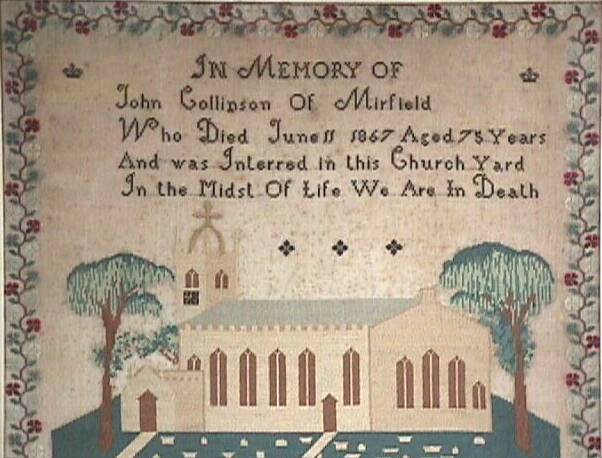 In Memory of
John Collinson Of Mirfield
Who Died June 11 1867 Aged 75 Years
And was Interred in this Church Yard
In the Midst Of Life We Are In Death